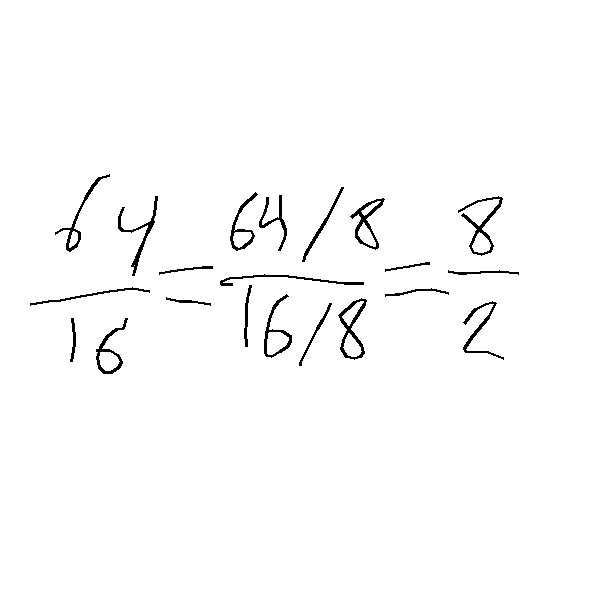 64/16 = (64/8)/(16/8) = 8/2